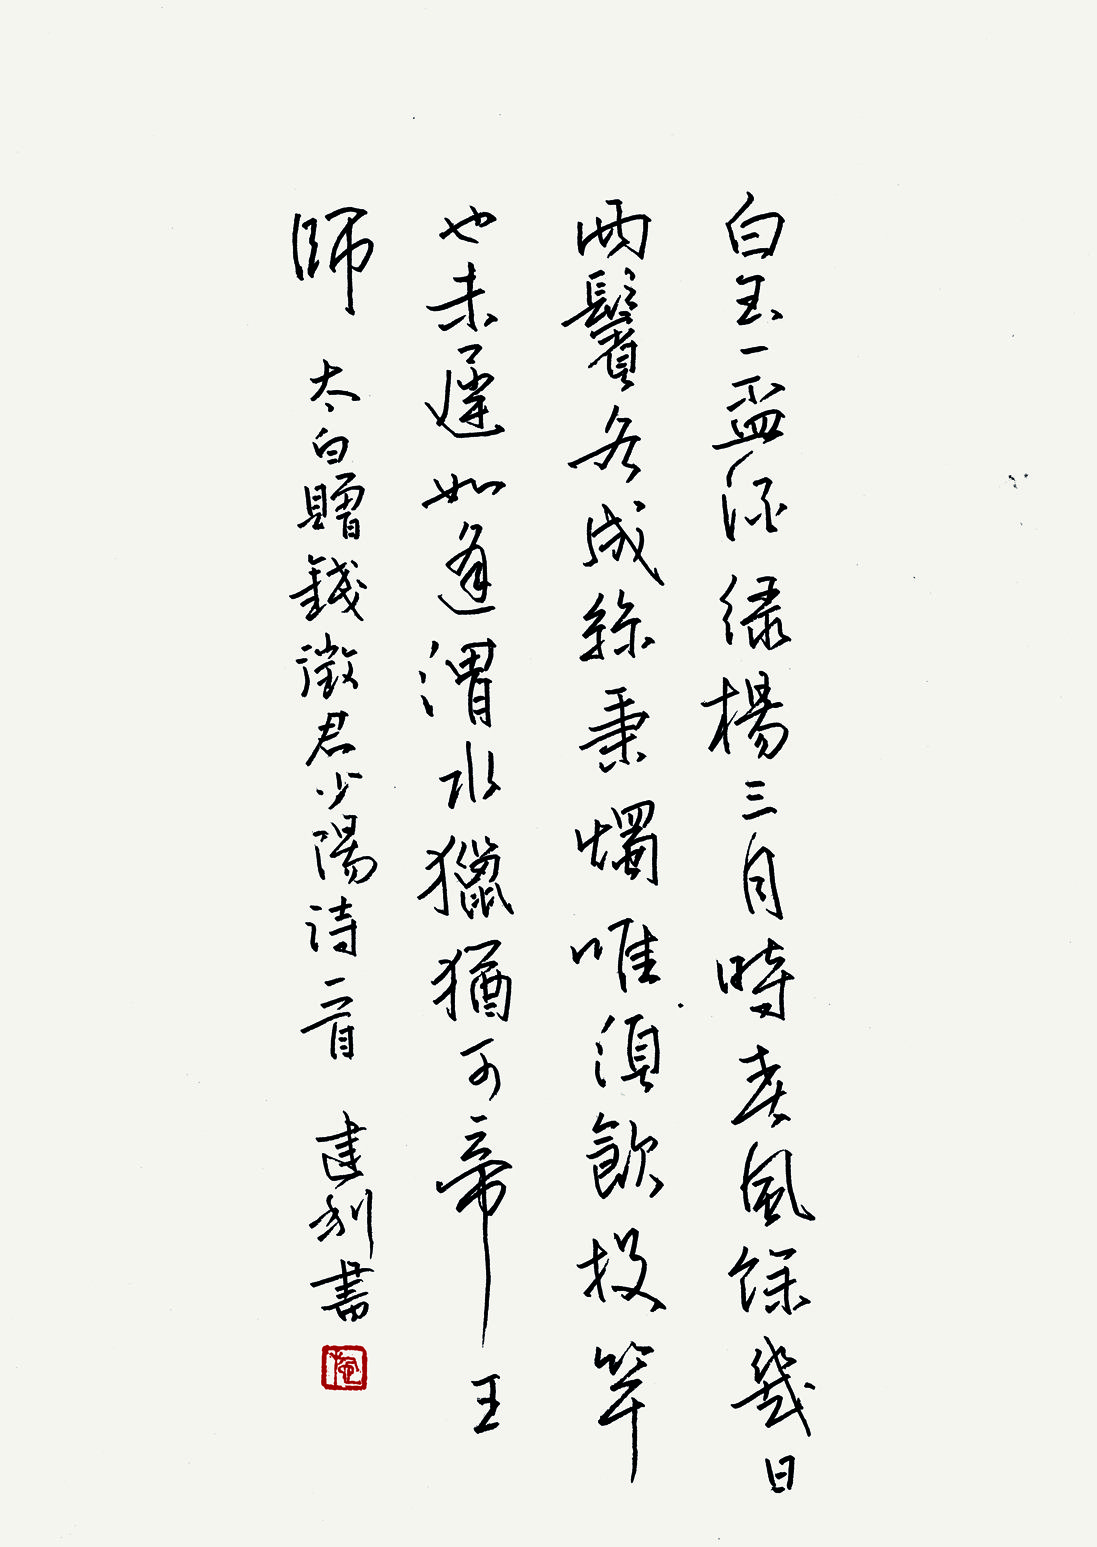 白玉一盃酒緑楊三月時春風餘幾日
兩鬢各成絲秉燭唯須飲投竿
也未遲如逢渭水獵猶可帝王
師 太白贈錢徵君少陽詩一首 建利書